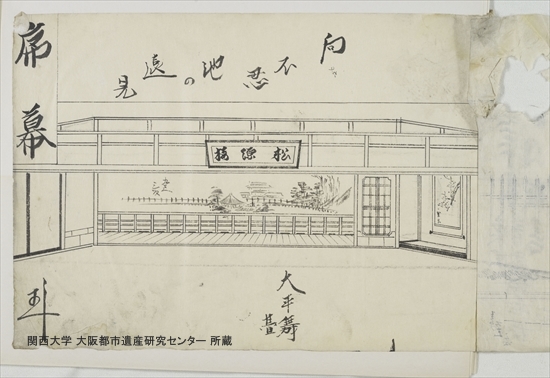 席幕
向
不忍池の遠見
松源楼
大平舞臺
関西大学 大阪都市遺産研究センター 所蔵